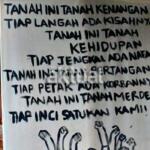 TANAH INI TANAH KENANGAN
TIAP LANGAH ADA KISAHNYA
TANAH INI TANAH
KEHIDUPAN
TIAP JENGKAL ADA NAFA
TANAH INI TANAH PERTANGAN
TIAP PETAK ADA KORBANNYA
TANAH INI TANAH MERDE
TIAP INCI SATUKAN KAMI!
aktual